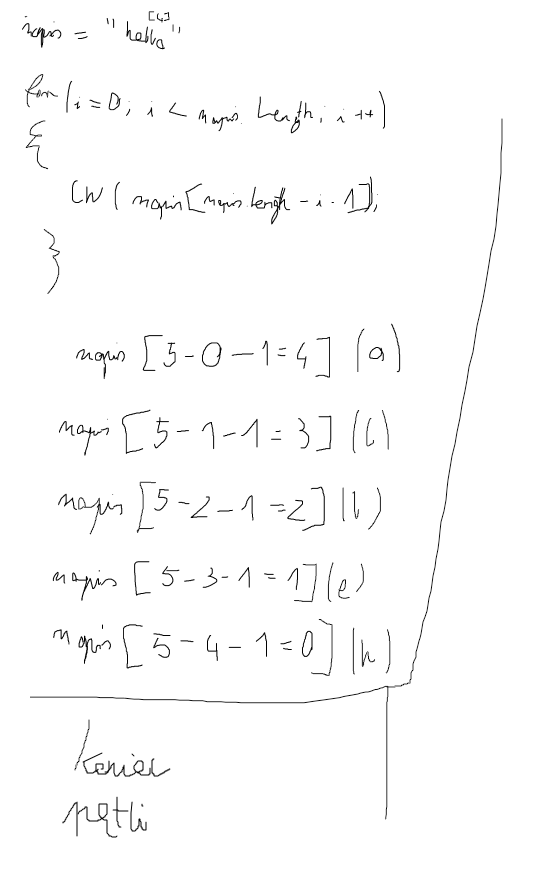 napis = "hello"
[4]
for (i = 0; i < napis.Length; i++)
{
CW ( napis[napis.length - i - 1]);
}
napis [5-0-1=4] (o)
napis [5-1-1=3] (l)
napis [5-2-1=2] (l)
napis [5-3-1=1] (e)
napis [5-4-1=0] (h)
koniec
pętli